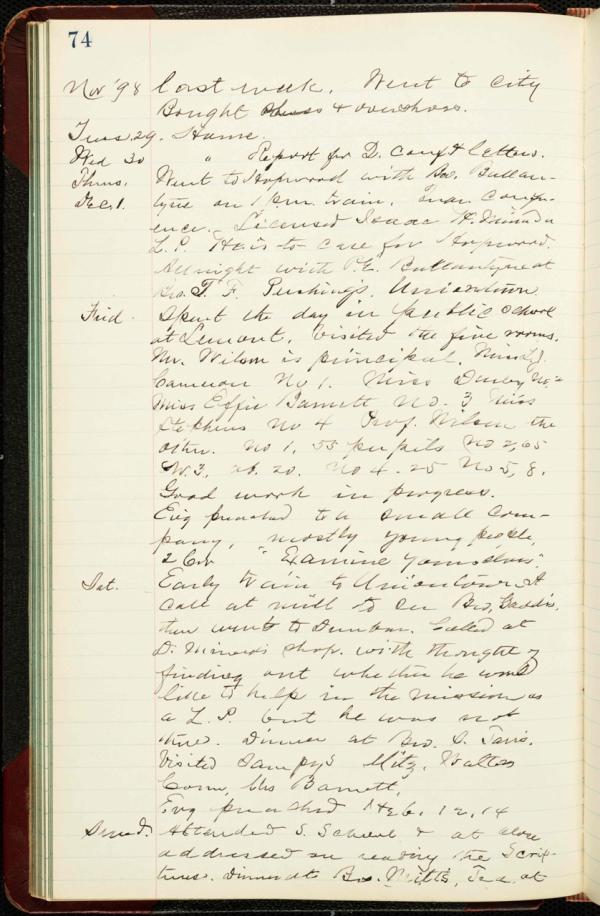 74
Nov '98 last week. Went to City
Bought shoes & overshoes.
Tues. 29. Home.
Wed 30 " Report for D. Conf & letters.
Thurs. Went to Hopwood with Bro. Ballan-
Dec. 1. tyne on 1 P.m. train. Quar. Confer-
ence. Licensed Isaac H. Minerd a
L. P. He is to care for Hopwood.
All night with P. E. Ballantyne at
Bro. T. F. Pershing's, Uniontown
Frid. Spent the day in public school
at Lemont. Visited the five rooms.
Mr. Wilson is principal. Miss
Cameron No 1. Miss No 2
Miss Effie Barnett No. 3 Miss
Stephens No 4 Prof. Wilson the
other. No 1, 55 pupils No 2, 65
N. 3, ab. 20. No 4. 25 No 5, 8.
Good work in progress.
Evg preached to a small com-
pany, mostly young people,
2 Cor " Examine yourselves".
Sat. Early train to Uniontown. A
call at mill to see Bro. Gaddis,
then went to Dunbar. Called at
D. Minerd's shop. with thought of
finding out whether he would
like to help in the mission as
a L. P. but he was not
there. Dinner at Bro. S.
Visited Sampy's Mitz, Walters
Corn, Mrs Barnett.
Evg preached Heb. 12, 14
Sund. Attended S. School & at close
addressed on reading the Scrip-
tures. Dinner at Bro. Mitts, Tea at